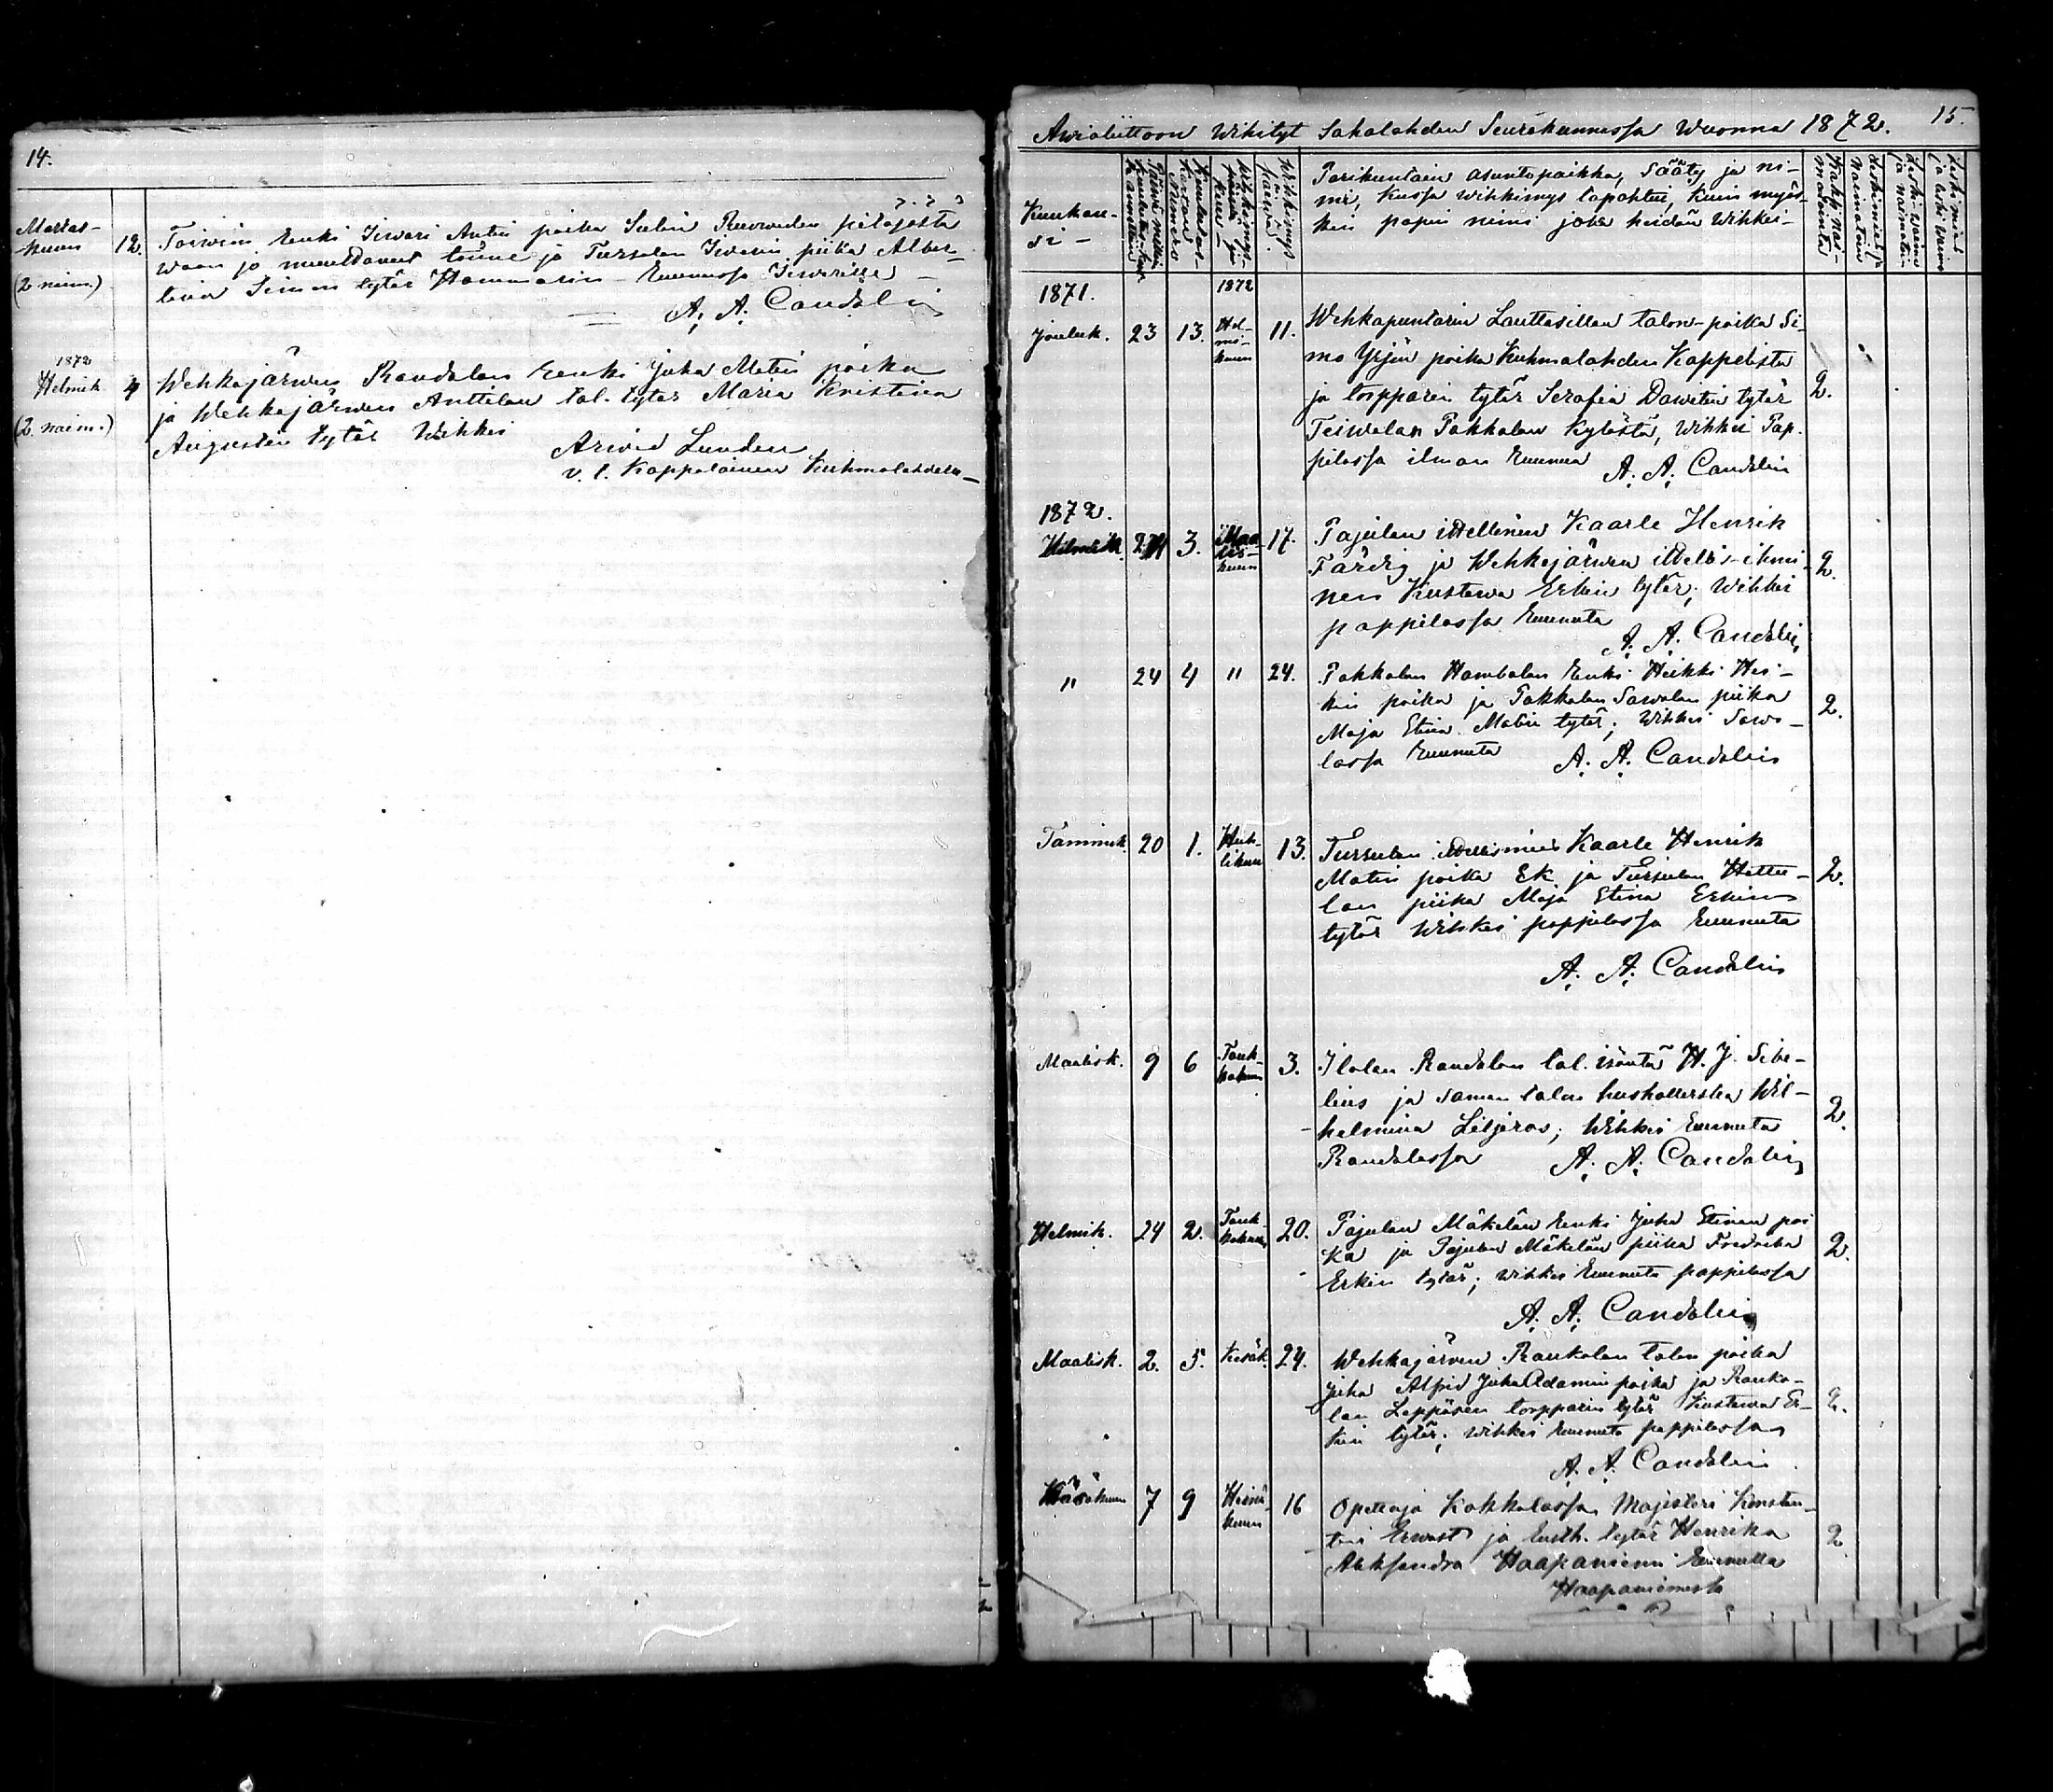 14.
Marras-
kuun 12.
(2 naim.)
Toiwin Renki Iiwari Antin poika Selin Ruoweden pitäjästä
ja Tursulan Iiwarin piika Alber-
tina Simon tytär Hammarin Euunussa Iiwarille
A. A. Candolin
1872
Helmik. 4
(2. naim.)
Wehkajärwen Randalan Renki Juha Matin poika
ja Wehkajärwen Anttilan tal. tytär Maria Kristina
Augustin tytär Wihkei
Arwid Lunden
v. t. Kappalainen Kuhmalahdella
15.
Awioliittoon Wihityt Sahalahden Seurakunnassa Wuonna 1872.
Kuukau-
si –
Wihkimys-
päiwä.
Pariskuntain asuntopaikka, Sääty ja ni-
mi, kussa wihkimys tapahtui, kuin myös-
kin papin nimi joka heidän Wihkei–
1871. 1872
Jouluk. 23 13. Hel-
mi-
kuun 11.
Wehkapuntarin Lauttasillan talon-poika Si-
mo Yrjön poika Kuhmalahden Kappelista
ja torpparin tytär Serafia Dawitin tytär
Teiwalan Pakkalan Kylästä, Wihki Pap-
pilassa ilman Euunua A. A. Candolin
2.
1872.
Helmik. 24 3. Maa-
lis-
kuun 17.
Pajulan itellinen Kaarle Henrik
Färdig ja Wehkajärwen itellis-ihmi-
nen Kustawa Erkin tytär; Wihkei
pappilassa Euunuta
A. A. Candolin
2.
" 24 4 " 24.
Pakkalan Hambalan Renki Heikki Hei-
kin poika ja Pakkalan Sawolan piika
Maja Stina Matin tytär; Wihkei Sawo-
lassa Euunuta A. A. Candolin
2.
Tammik. 20 1. Huh-
tikuun 13.
Tursulan itellismies Kaarle Henrik
Matin poika Ek ja Tursulan Hattu-
lan piika Maja Stina Erkin
tytär Wihkei pappilassa Euunuta
A. A. Candolin
2.
Maalisk. 9 6 Touk-
kokuun 3.
Ilolan Randalan tal. isäntä H. J. Sibe-
lius ja saman talon hushollerska Wil-
helmina Liljeros; Wihkei Euunuta
Randalassa A. A. Candolin
2.
Helmik. 24 2. Touk-
kokuun 20.
Pajulan Mäkelän Renki Juha Stinan poi
ka ja Pajulan Mäkelän piika Fredrika
Erkin tytär; Wihkei Euunuta pappilassa
A. A. Candolin
2.
Maalisk. 2. 5. Kesäk. 24.
Wehkajärwen Raukolan talon poika
Juha Alfrid Juha Adamin poika ja Rauko-
lan Leppäsen torpparin tytär Kustawa Er-
kin tytär; Wihkei Euunuta pappilassa
A. A. Candolin
2.
Kesäkuun 7 9 Heinä-
kuun 16
Opettaja Kokkolassa, Majisteri Konstan-
tin Erwast ja tytär Henrika
Aleksandra Haapaniemi Euunutta
Haapaniemestä
2